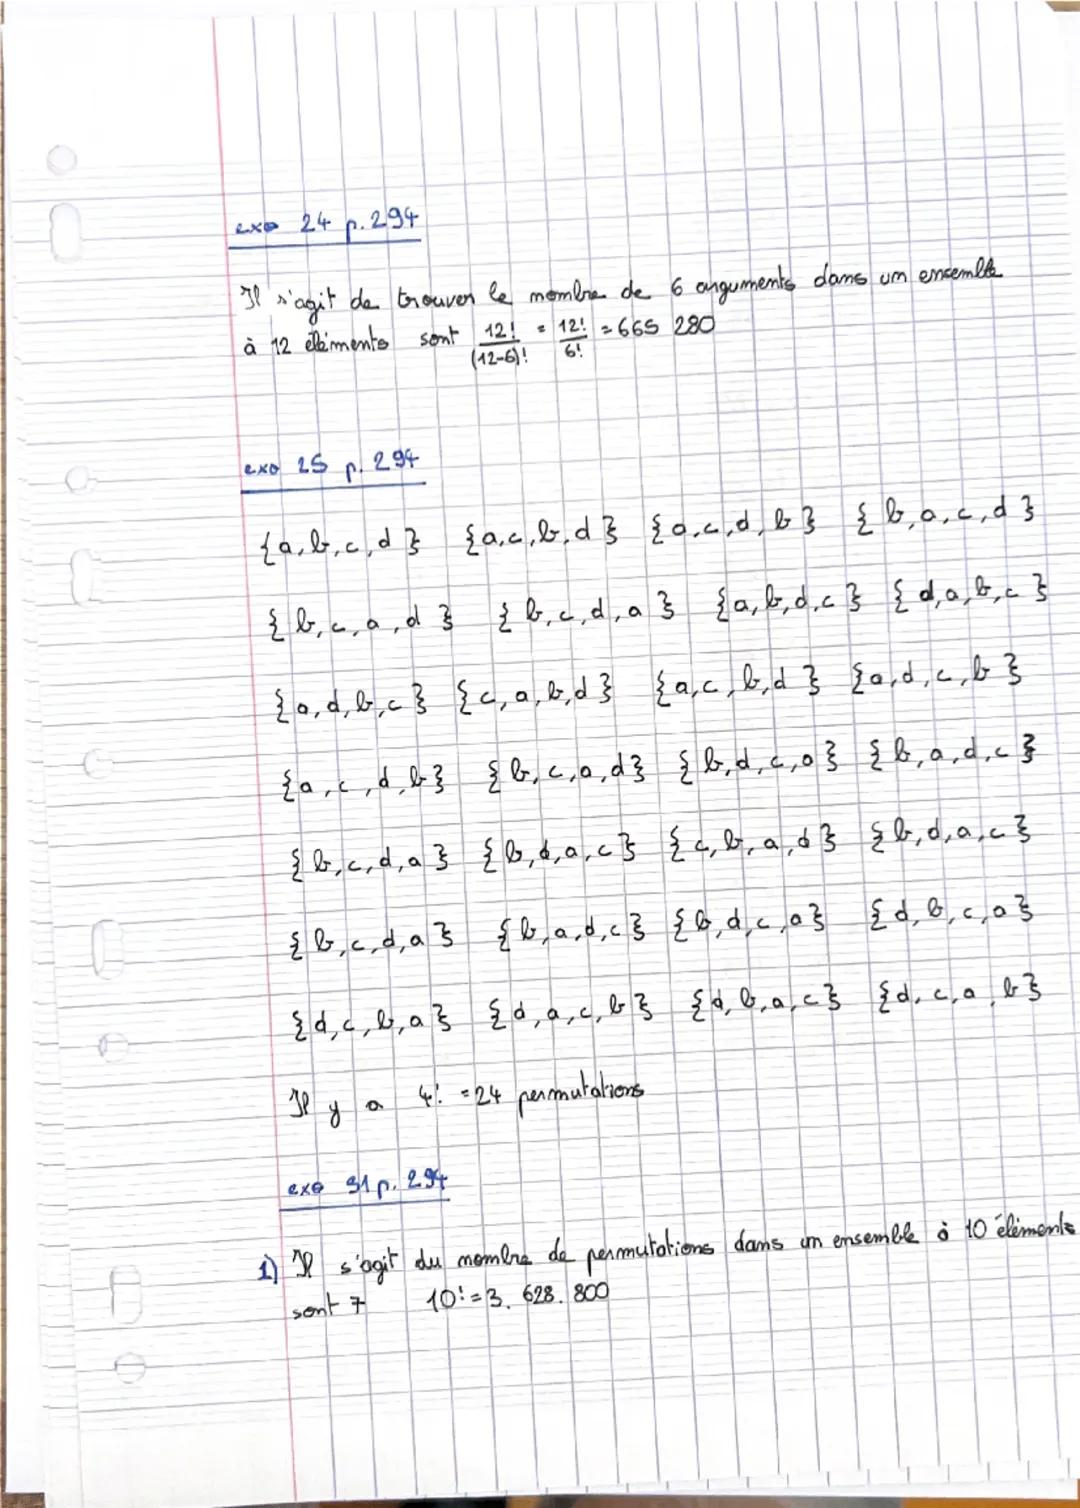 exo 24 p.294
Il s'agit de trouver le nombre de 6 arguments dans un ensemble
à 12 éléments sont 12!/(12-6)! = 12!/6! = 665 280
exo 25 p. 294
{a,b,c,d} {a,c,b,d} {a,c,d,b} {b,a,c,d}
{b,c,a,d} {b,c,d,a} {a,b,d,c} {d,a,b,c}
{a,d,b,c} {c,a,b,d} {a,c,b,d} {a,d,c,b}
{a,c,d,b} {b,c,a,d} {b,d,c,a} {b,a,d,c}
{b,c,d,a} {b,d,a,c} {c,b,a,d} {b,d,a,c}
{b,c,d,a} {b,a,d,c} {b,d,c,a} {d,b,c,a}
{d,c,b,a} {d,a,c,b} {d,b,a,c} {d,c,a,b}
Il y a 4! = 24 permutations
exo 31 p. 294
1) Il s'agit du nombre de permutations dans un ensemble à 10 éléments
sont 7 10! = 3. 628. 800